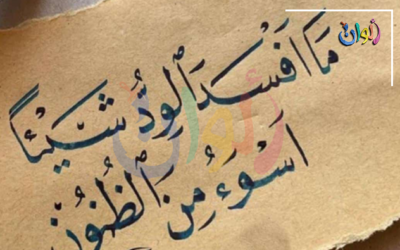 ألوان
مَا أَفْسَدَ ٱلوُدَّ شَيْئًا
أَسْوَءُ مِنَ ٱلظُنُونِ